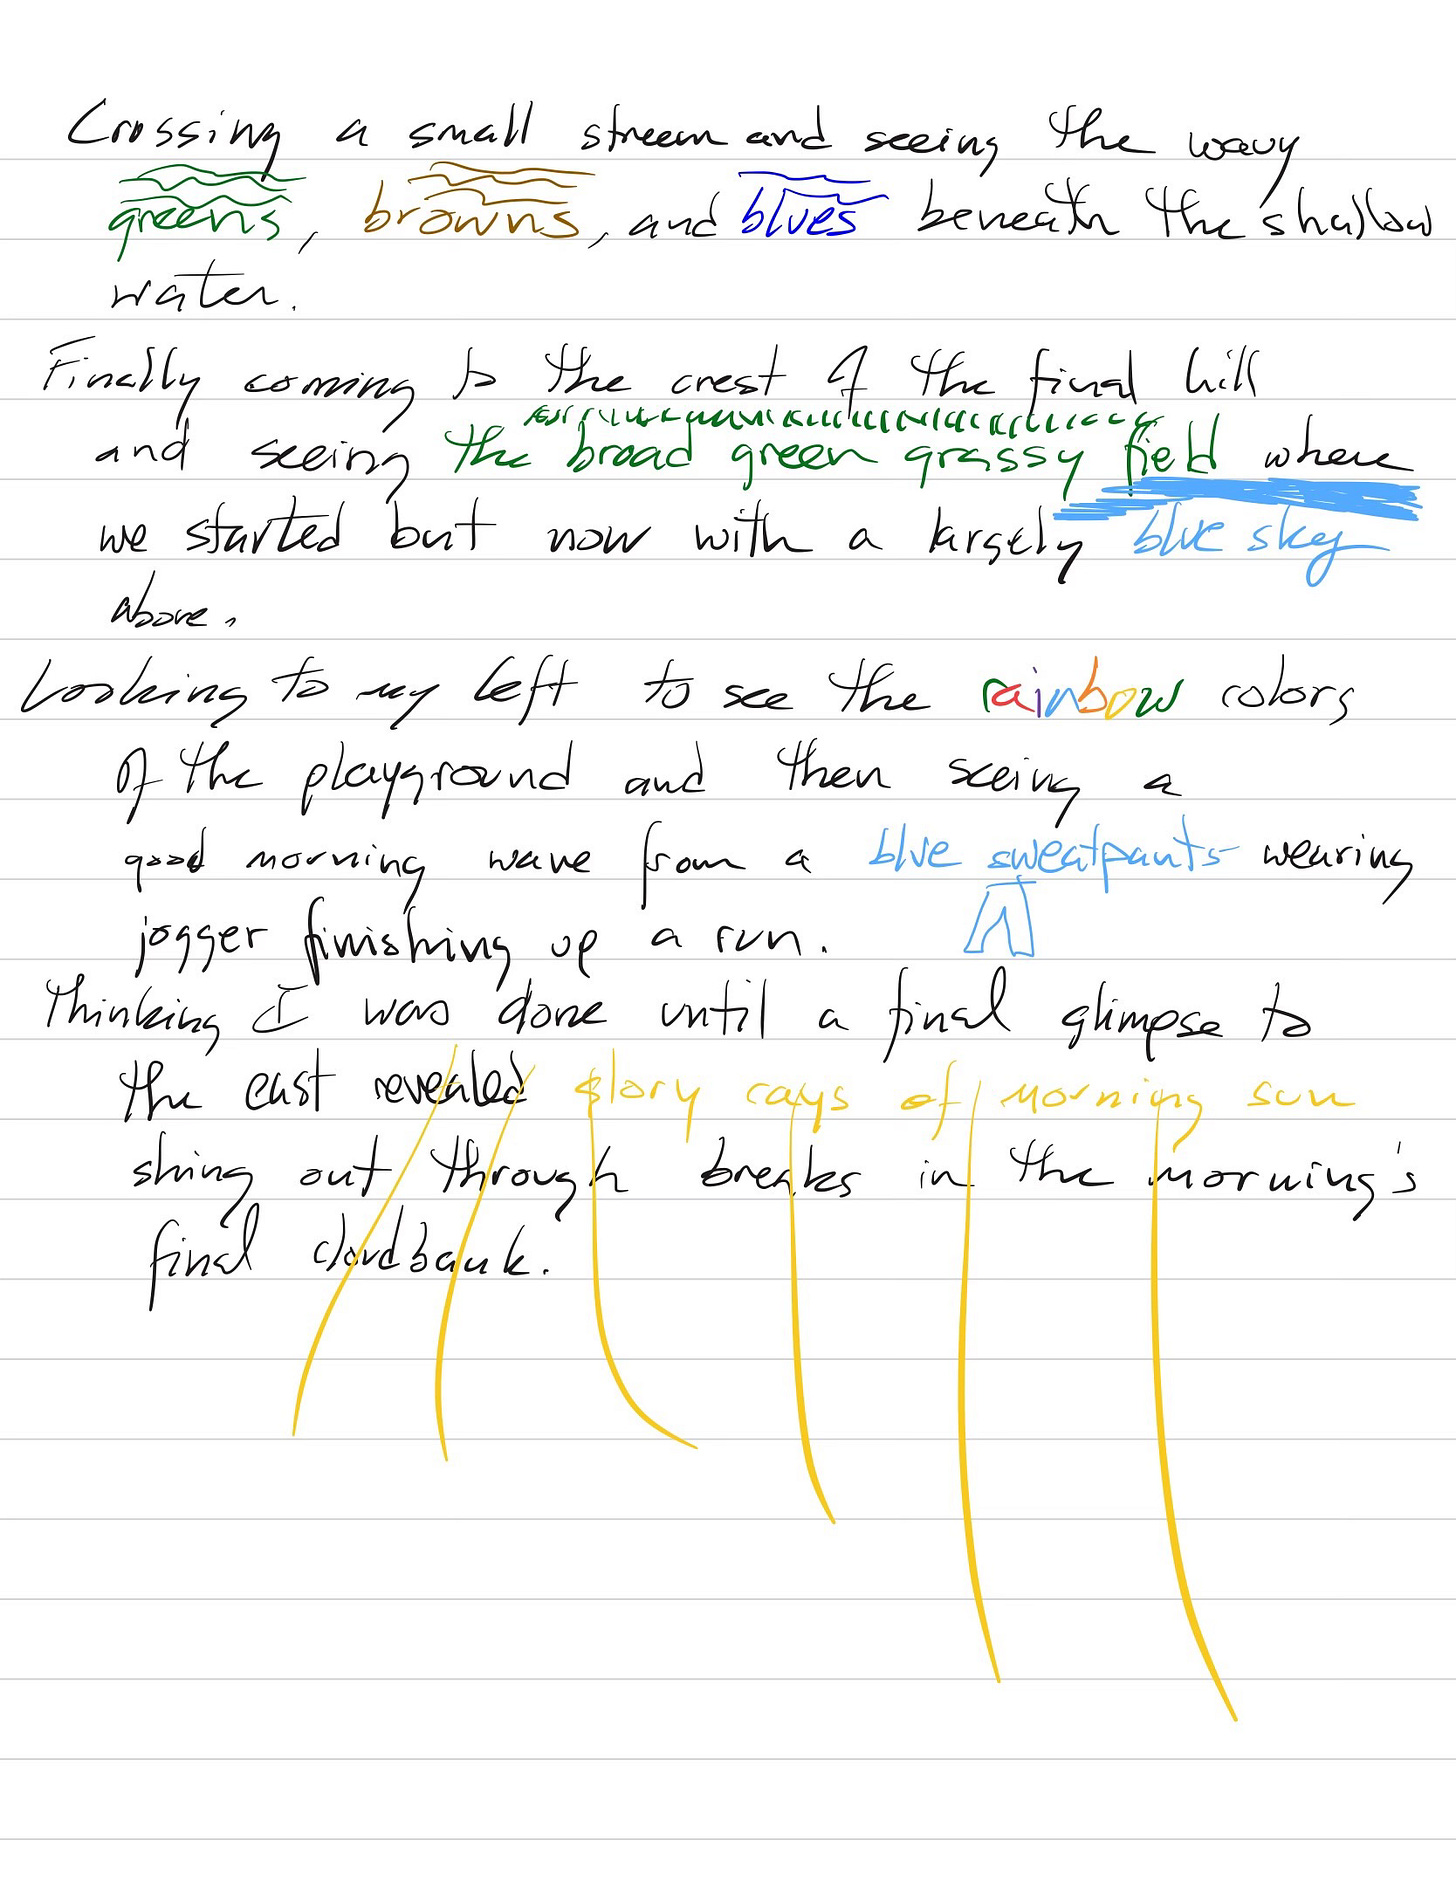 Crossing a small stream and seeing the wavy
greens, browns, and blues beneath the shallow
water.
Finally coming to the crest of the final hill
and seeing the broad green grassy field where
we started but now with a largely blue sky
above.
Looking to my left to see the rainbow colors
of the playground and then seeing a
good morning wave from a blue sweatpants wearing
jogger finishing up a run.
Thinking I was done until a final glimpse to
the east revealed glory rays of morning sun
shing out through breaks in the morning's
final cloudbank.